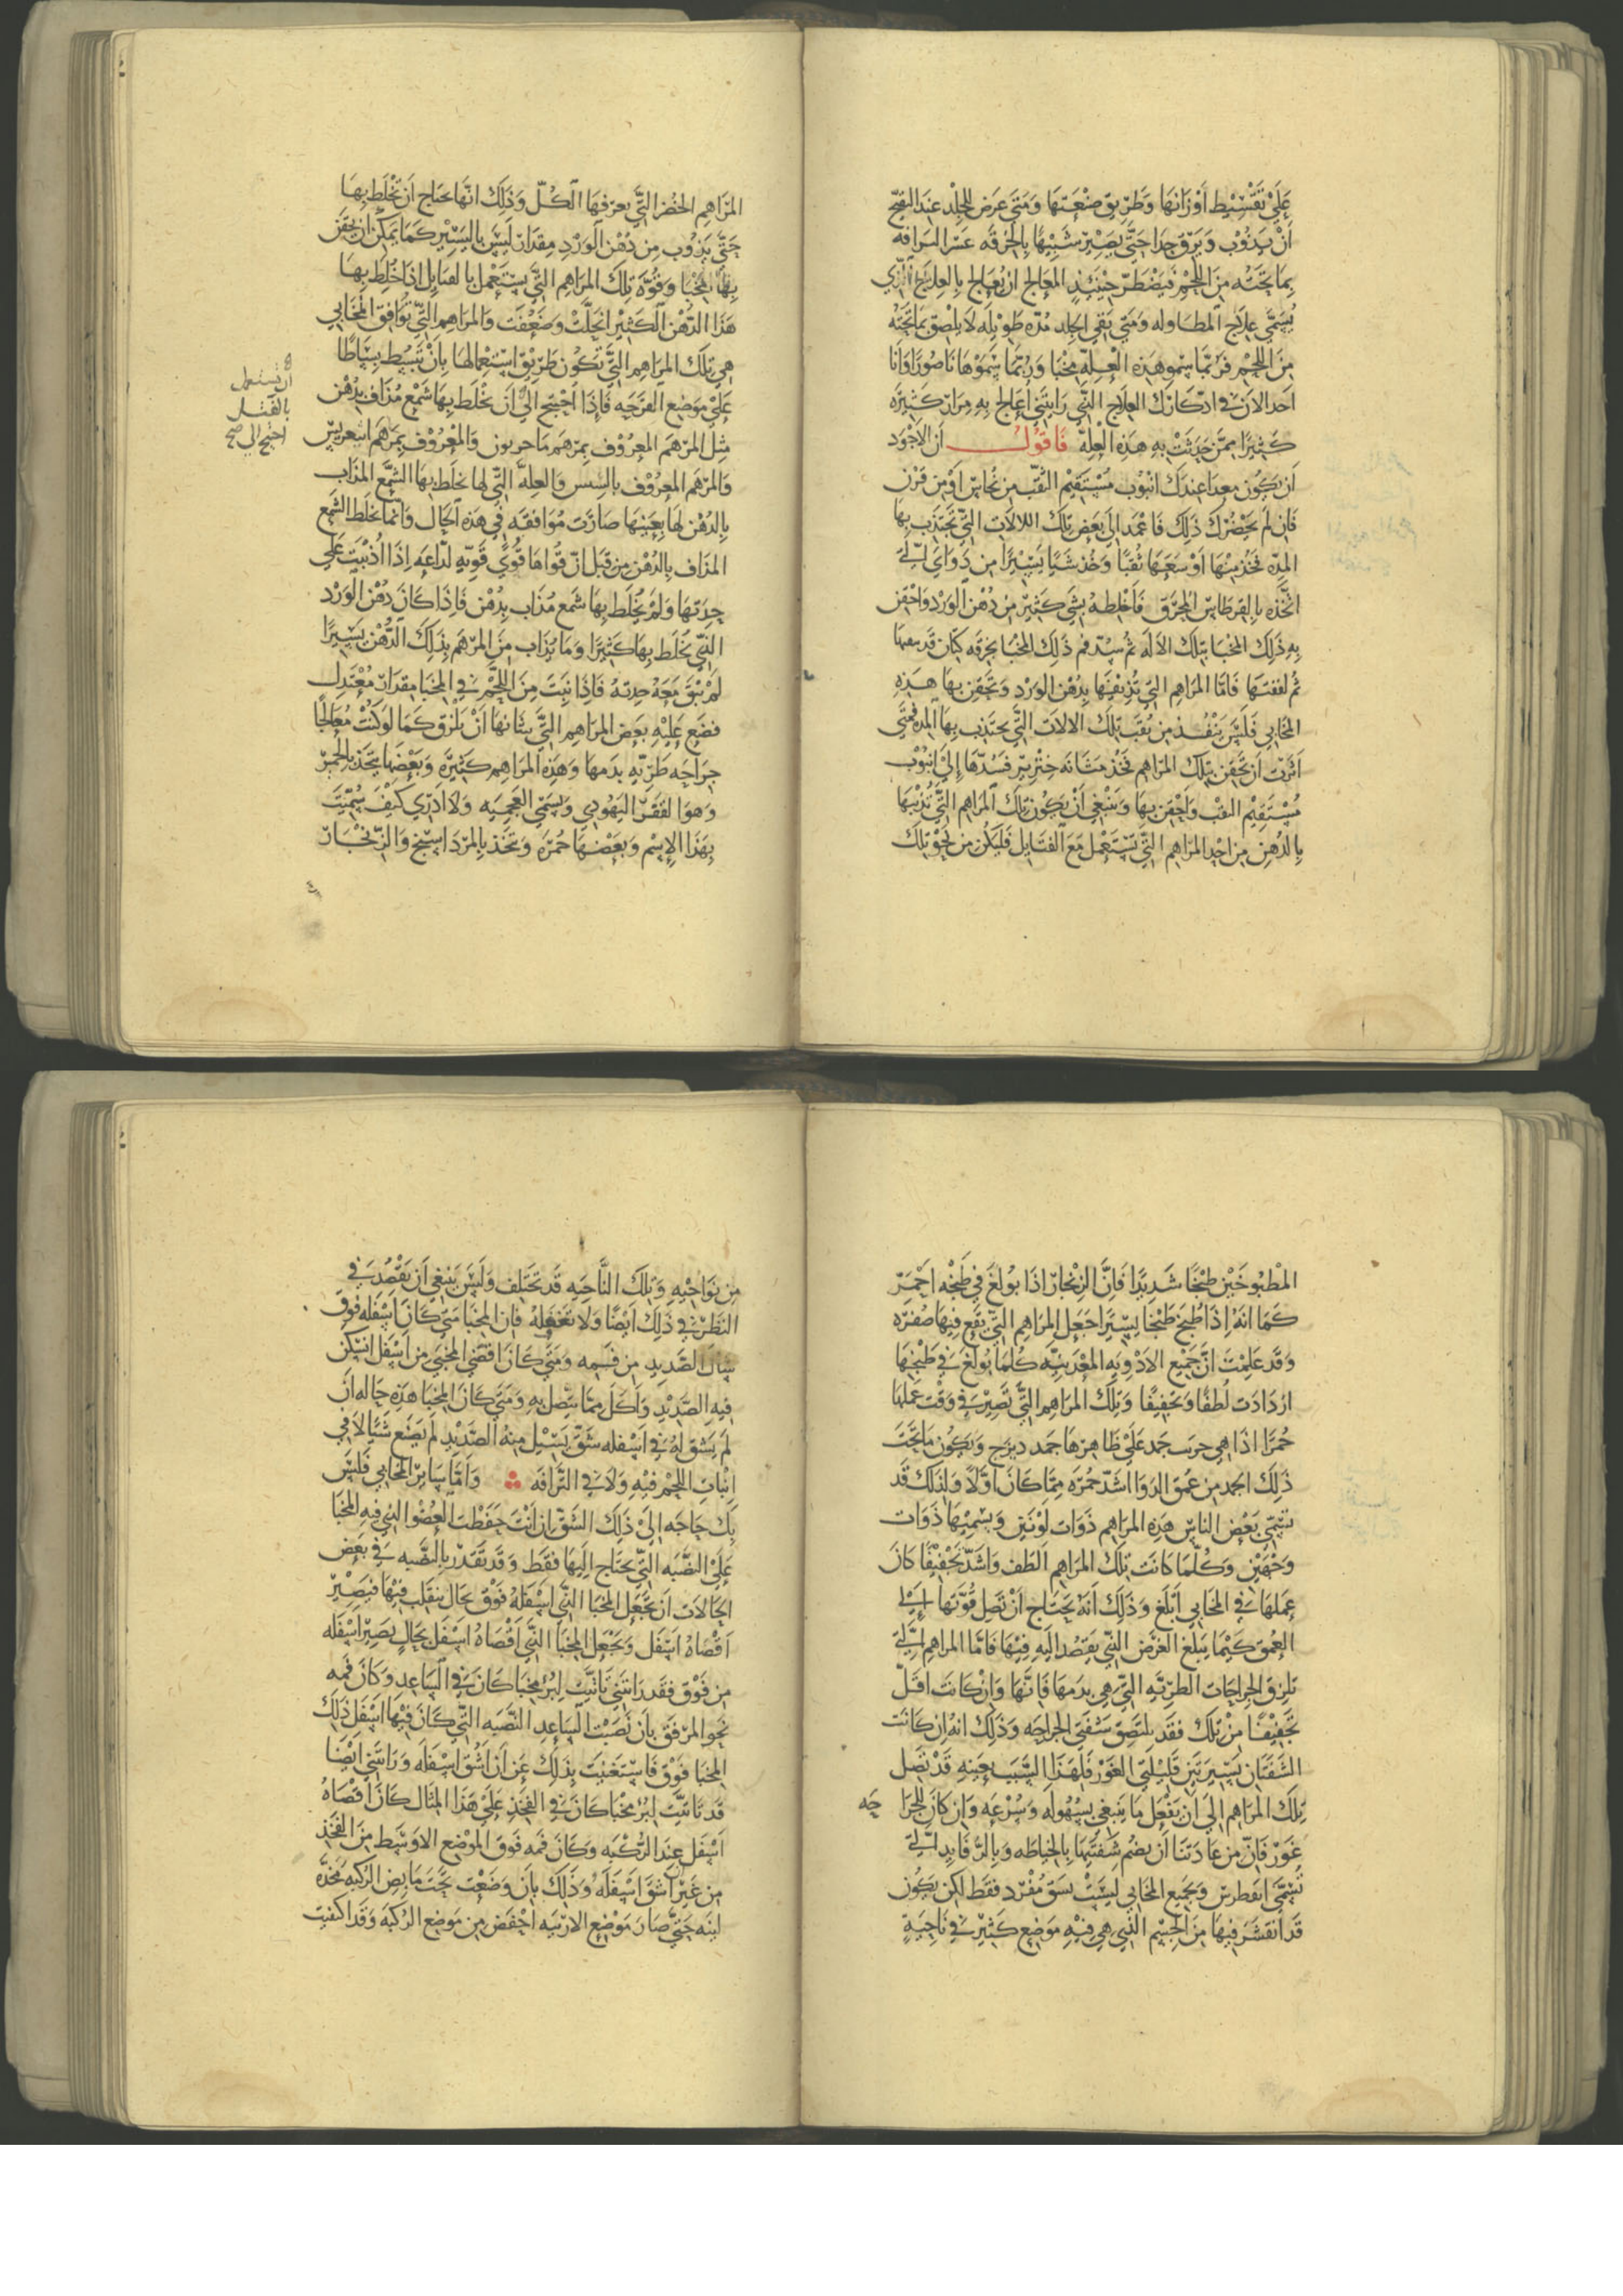 عَلَيْ تَقْسِيْط اَوْزَانهَا وَطَرِيق صَنْعَتهَا وَمَتَي عَرض للجِلْد عندَ القيح
اَنْ يَذُوْب وَيَرِق جدَا حَتَّي يَصِيْر شَبِيْهًا بالخرقَه عسَر التزاقه
بمَا تحتَه مِنَ اللحْم فيَضْطَرّ حِيْنَئِذٍ المعَالج ان يُعَالج بالعِلَاج الذي
يُسَمَّي علاج المطَاوله وَمَتي بقي الجلد مُدّه طَوِيْله لا يلصق بمَا تحتَه
مِنَ اللحْم فربّمَا سمّو هَذِه العِلّه مخبَا وَربّمَا سَمّوْهَا نَاصُورًا وَانا
اخذ الان في اذكارك العلاج الذي رَايتَني اعَالج به مرَارً كثِيرَه
كَثِيرًا ممَّن حَدَثَتْ به هَذه العلّه فَاقولُ ان الاجْوَد
اَن يَكُون معدا عندَك انبُوب مُسْتَقيْم الثقب من نحُاس اَوْ من قرن
فَان لم يحْضُرْك ذلكَ فَاعمد الي بَعض تلكَ الالاَت التي تجتَذب بهَا
المِدّه فخذ منْهَا اَوْسَعَهَا ثقبًا وَخُذ شَيئا يَسِيْرًا من دَوَاي الذي
اتّخذه بالقرطاس المحرَق فَاخْلطهُ بشَي كَثِيْر من دُهن الوَرْد وَاحْقن
بهِ ذَلِك المخبَا بتلكَ الاَله ثم سدّ فم ذَلك المخْبَا بخرقَه كتّان قَد
ثم لففتهَا فَامّا المرَاهِم التي تُذِيْبهَا بدُهْن الوَرْد وَتحْقن بهَا هَذِه
المخَابي فَلَيْسَ يَنْفُذ مِن ثقب تِلكَ الالاَت التَّي يجتَذب بهَا المده فمتَي
اَرَدْتَ ان تحقن بتلك المرَاهم فخُذ مثَانَه خنْزير فسدّهَا اِلي انبُوْب
مُسْتَقيْم الثقب وَاحْقن بهَا وَينْبَغي اَنْ يَكُون تِلكَ المرَاهم التَّي تُذيبهَا
بالدُهن مِن احَد المرَاهم التَي تَستَعمل مَعَ الفتَايل فَليكُن من نحْو تِلك
المرَاهِم الخضر التَّي يعرفهَا الكُلّ وَذَلكَ انهَا يحتاج اَن تخلط بهَا
حَتَّي يَذوب مِن دُهْن الوَرْد مِقدَار لَيْسَ بِاليسِيْر كَمَا يمَكن ان يحقن
بهَا المخبَا وَقُوّة تِلكَ المرَاهم التَّي يستعمَل بالفتَايل اذَا خلط بهَا
هَذَا الدُّهْن الكَثِيْر انحلَّتْ وَضعُفَت وَالمرَاهم التي تُوَافق المخَابي
هِي تِلكَ المرَاهم التَّي تَكُون طَريْق استِعْمالهَا بِاَنْ تبسُط بسَاطًا
عَلي مَوضع القرحَه فَاِذَا اُحْتِيْج الي اَن يخْلَط بهَا شَمْع مُذَاف بِدُهْن
مثل المرْهَم المعرُوف بمِرْهَم وَالمعْرُوف بِمَرهَم
وَالمرْهَم المعرُوف بالسِمْسم وَالعِلَّه التّي لهَا يخلَط بهَا الشَّمَع المذَاب
بِالدُهْن لهَا بِعَينهَا صَارَت مُوَافقَه في هَذه الحَال وَانمّا يخلَط الشَمع
المذَاف بالدُهْن من قَبل انّ قوَاهَا قُوًي قَوِيَّه لذّاعَه اِذَا اُذيْبَت عَلي
حِدَتهَا وَلمْ يُخلَط بهَا شَمع مُذَاب بدُهْن فَاِذَا كَانَ دُهْن الوَرْد
الذي يخلَط بهَا كَثِيْرًا وَمَا يُذَاب مِنَ المرْهَم بِذَلِكَ الدُّهْن يَسِيْرًا
لمْ يَبْقَ مَعَهُ حِدتَهُ فَاِذَا نَبَتَ مِنَ اللحْم في المخبَا مِقدَار مُعْتَدِل
فضَع عَلَيْهِ بَعَض المرَاهِم التَّي شَانهَا اَنْ تَلْزق كَمَا لَوكنْتَ مُعَالجًا
جرَاحَه طَرِيّه بدَمهَا وَهَذِه المرَاهِم كَثِيرَه وَبَعْضهَا يتّخذ بالحمر
وَهوَ القَفر اليَهُودِي وَيسَمي العَجميّه وَلَا اَدرِي كَيْفَ سُمِّيَت
بِهَذَا الاِسْم وَبَعَضْهَا حُمرَه وَتتّخَذ بِالمرْدَاسنْج وَالزّنجَار
ان تستعمل
بالفتل
احتج الي صح
المطْبُوخَيْن طبْخًا شَدِيدًا فَاِنَّ الزنجَار اذَا بولغَ في طَبْخه احْمَرّ
كَمَا انهُ اِذَا طُبخَ طَبْخًا يَسِيْرًا جَعَل المرَاهِم التَّي يَقَع فِيهَا صُفرَه
وَقَد عَلِمْتَ انّ جَمِيْع الاَدْوِيه المعْدَنِيّه كُلمَا بُولغَ في طَبْخهَا
ازدَادَت لُطفًا وَتجفِيْفًا وَتِلكَ المرَاهِم التَّي تَصِيْر في وَقْت عَملهَا
حُمرًا اذَا هِي جَمد عَلَيْ ظَاهِرهَا جمد وَيكُون مَا تحْتَ
ذَلِكَ الجمد من عُمق الدَوَا اشَدّ حُمرَه ممّا كَانَ اوَّلاً وَلذَلكَ قَد
يسَمّي بَعْض النَاسِ هَذِه المرَاهِم ذَوَات لوْنَيَن وَيسَميْهَا ذَوَات
وَجْهَيْن وَكُلّمَا كَانَت تِلكَ المرَاهِم اَلطَف وَاشَدّ تَجْفِيْفًا كَانَ
عِمَلهَا في المخَابي اَبلَغ وَذَلكَ اَنه يَحتَاج اَنْ تَصل قُوّتهَا اِلي
العُمق كَيْمَا يَبْلغ الغرَض الذي يقصُد اِلَيه فِيْهَا فَامّا المرَاهِم التي
تلزق الجرَاحَات الطَرِيّه التي هِي بدَمهَا فَانّهَا وَاِنْ كَانَت اقَلّ
تجفِيْفًا مِنْ تِلك فقَد يلتَصِق شَفتَي الجرَاحَه وَذَلِكَ انهُ اِن كَانَت
الشَفتَان يسِيْرَتَيَن قَلِيْلتَي الغَوْر فَلهَذَا السَّبَب بِعَيْنه قَدْ تَصل
تِلكَ المرَاهم اِلي اَن يَفعَل مَا يَنبَغي بِسُهُولَه وَسُرْعَه وَان كانَ للجرَا حَه
غَوْر فَانّ مِن عَادَتنَا اَن يضُم شَفتَيهَا بِالخيَاطَه وَبالرفَايد التي
تُسَمَّي وَجَميع المخَابي ليسَتْ بشَق مُفْرَد فقَط لكن يكُون
قَد انقشَرَ فيهَا مِنَ الجِسْم الذي هِي فيْه مَوْضِع كَثِيْر في نَاحِيَةٍ
مِن نوَاحِيْه وَتلكَ النَّاحِيه قَد تختَلف وَلَيْسَ يَنبَغي اَن يَقْصُد في
النظَر في ذَلكَ اَيْضًا وَلا تَغْفلهُ فَان المخبَا مَتي كَانَ اَسْفله فَوْق
سَالَ الصّدِيد مِن فَمِه وَمَتَي كَانَ اقصي المخبي مِن اَسْفَل استكن
فِيه الصّدِيْد وَاَكَلَ مِمّا يتّصِل به وَمَتَي كَانَ المخبَا هَذِه حَاله اَن
لمَ يَشق لَهُ في اَسْفله شَقّ يَسِيْل منهُ الصّدِيْد لم يَصْنَع شَيئا لَا في
انبَات اللحْم فيْهِ وَلَا في التزَاقه وَاَمّا سَايِر المخَابي فَليسَ
بِك حَاجَه اِليَ ذَلِكَ الشقّ اِن اَنْتَ حفَظت العُضو الذي فيه المخبَا
عَليَ النصْبَه التَّي يحتَاج اليهَا فقَط وَقَد تَقدر بالنصْبَه في بَعْض
الحَالاَت اَن تجْعَل المخبَا الذي اسْفلهُ فَوْق بحَال ينقَلب فيهَا فَيَصِيْر
اَقْصَاهُ اسْفل وَتجعَل المخبَا الذي اَقْصَاهُ اسْفَل بحَالٍ يَصِير اسْفَله
من فَوْق فَقَد رَايتني تَانيْت لبُرْ مخبَا كَانَ في السَاعِد وَكَانَ فمه
نحو المرفَق بان نَصَبْت السَاعِد النصْبَه التي كَانَ فيْهَا اسْفل ذَلك
المخبَا فَوْق فَاسْتَغنيت بذَلِكَ عَن اَن اَشُقّ اَسْفله وَرَايتني اَيضًا
قد تَانيّت لبُرْ مخْبَا كَانَ في الفخِذ عَليَ هَذَا المثَال كَانَ اَقْصَاهُ
اَسْفَل عِندَ الرُكْبَه وَكَانَ فمه فَوق الموْضع الاوْسَط مِنَ الفخذ
مِن غَيْر ان اَشقّ اَسْفَلهُ وَذَلكَ بِاَن وَضَعْت تحْت مَابض الرُكبه مخَدّه
لينَه حَتَّي صَارَ مَوْضِع الارْبيَه اخفَض مِن مَوضِع الرُكبَه وَقَد اكتفيت